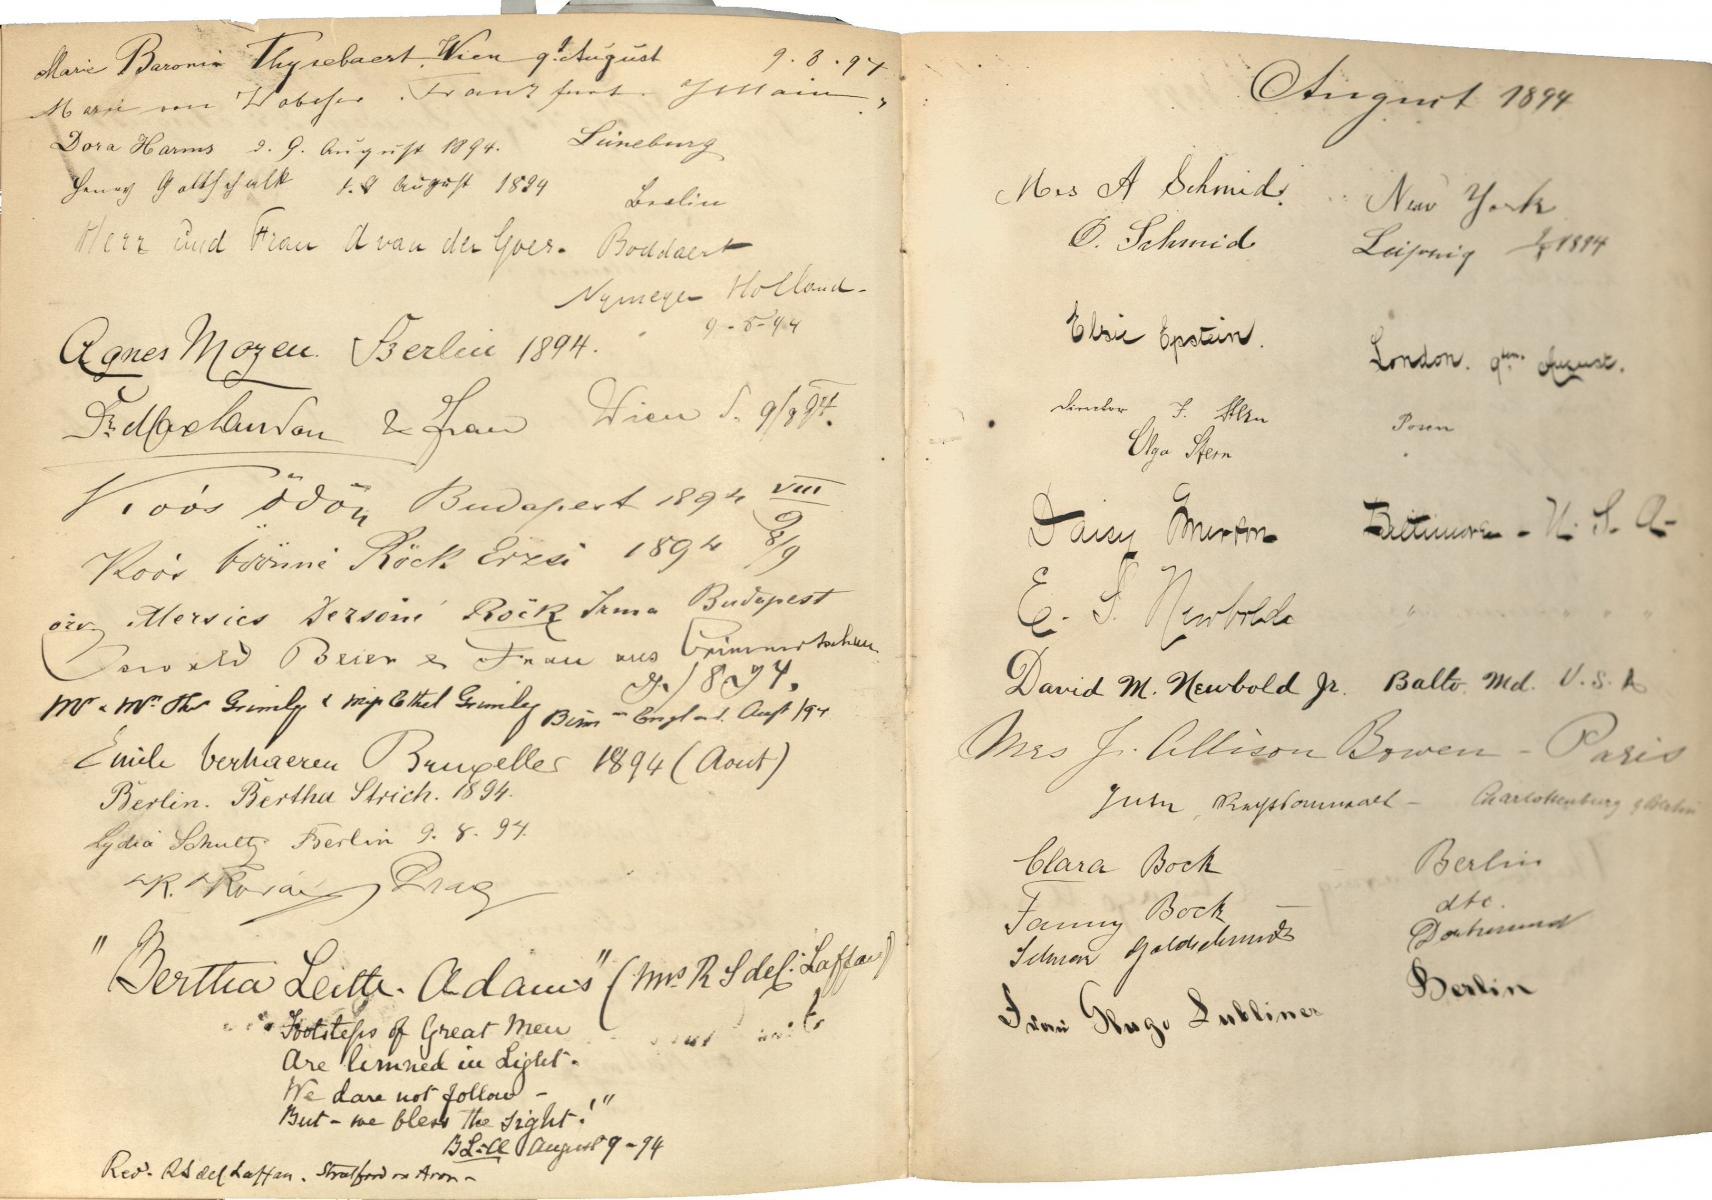 Marie Baronin Thysebaert Wien 9t August 9.8.94
Marie von Frankfurt Main
Dora Harms d. 9. August 1894. Lüneburg
Henry Gottschalk August 1894 Berlin
Herr und Frau A van der Goes. Boddaert
Nymegen Holland.
9-8-94
Agnes Mozen. Berlin 1894.
Dr. Max Landau & Frau Wien d. 9/8 94.
Koós Ödön Budapest 1894 VIII/9
Koós Ödönné Röck Erzsi 1894 8/9
özv. Mersics Dezsöné Röck Irma Budapest
Oswald Beier & Frau aus Crimmitschau
1894.
Mr & Mrs Thos Grimley & Miss Ethel Grimley England. Augt /94
Emile Verhaeren Bruxelles 1894 (Aout)
Berlin. Bertha Strich. 1894.
Lydia Schultz Berlin 9. 8. 94.
K. Prag
"Bertha Leith-Adams" (Mrs R S de C. Laffan)
Footsteps of Great Men
Are limned in Light.
We dare not follow -
But - we bless the sight!"
B L-A August 9 - 94
Rev. R S de C Laffan. Stratford on Avon -
August 1894
Mrs A Schmid. New York
O. Schmid Leipzig 9/8 1894
Elsie Epstein. London. 9ten August.
Director J. Stern Posen
Olga Stern
Daisy Emerton Baltimore - U. S. A-
E. S. Newbold " " " "
David M. Newbold Jr. Balto. Md. U.S.A
Mrs J. Allison Bowen - Paris
Charlottenburg b/Berlin
Clara Bock Berlin
Fanny Bock dto.
Selmar Goldschmidt Dortmund
Frau Hugo Lubliner Berlin